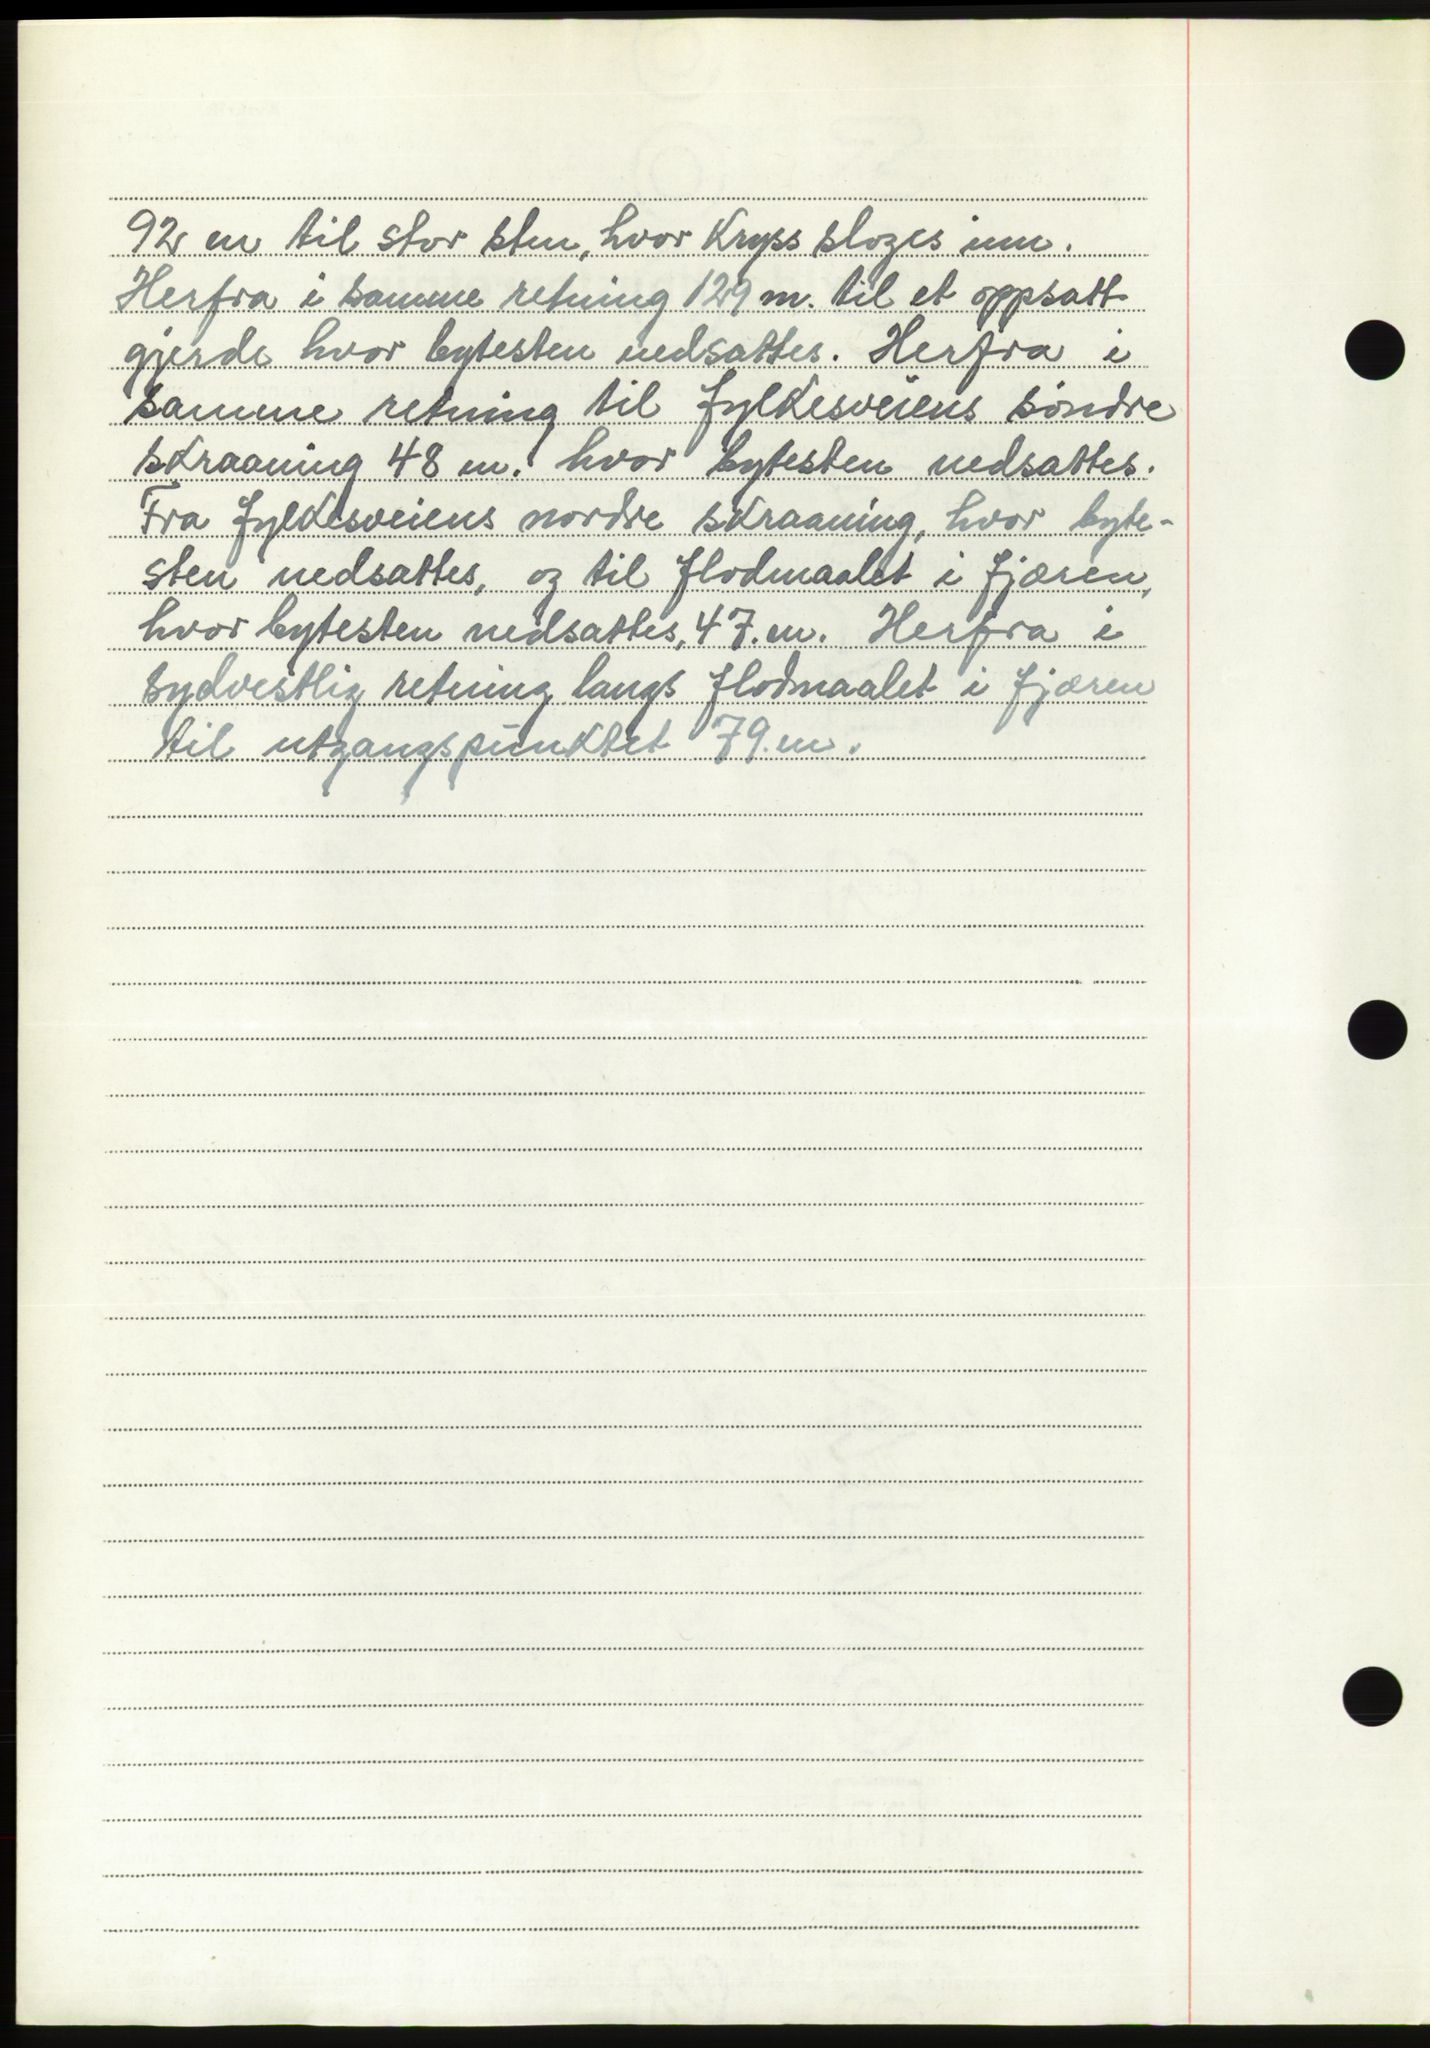 92 m til stor sten, hvor Kryss sloges inn.
Herfra i samme retning 129 m. til et oppsatt
gjerde hvor bytesten nedsattes. Herfra i
samme retning til fylkesveiens söndre
skraaning 48 m. hvor bytesten nedsattes.
Fra fylkesveiens nordre skraaning, hvor byte-
sten nedsattes, og til flodmaalet i fjæren,
hvor bytesten nedsattes, 47. m. Herfra i
sydvestlig retning langs flodmaalet i fjæren
til utgangspunktet 79. m.